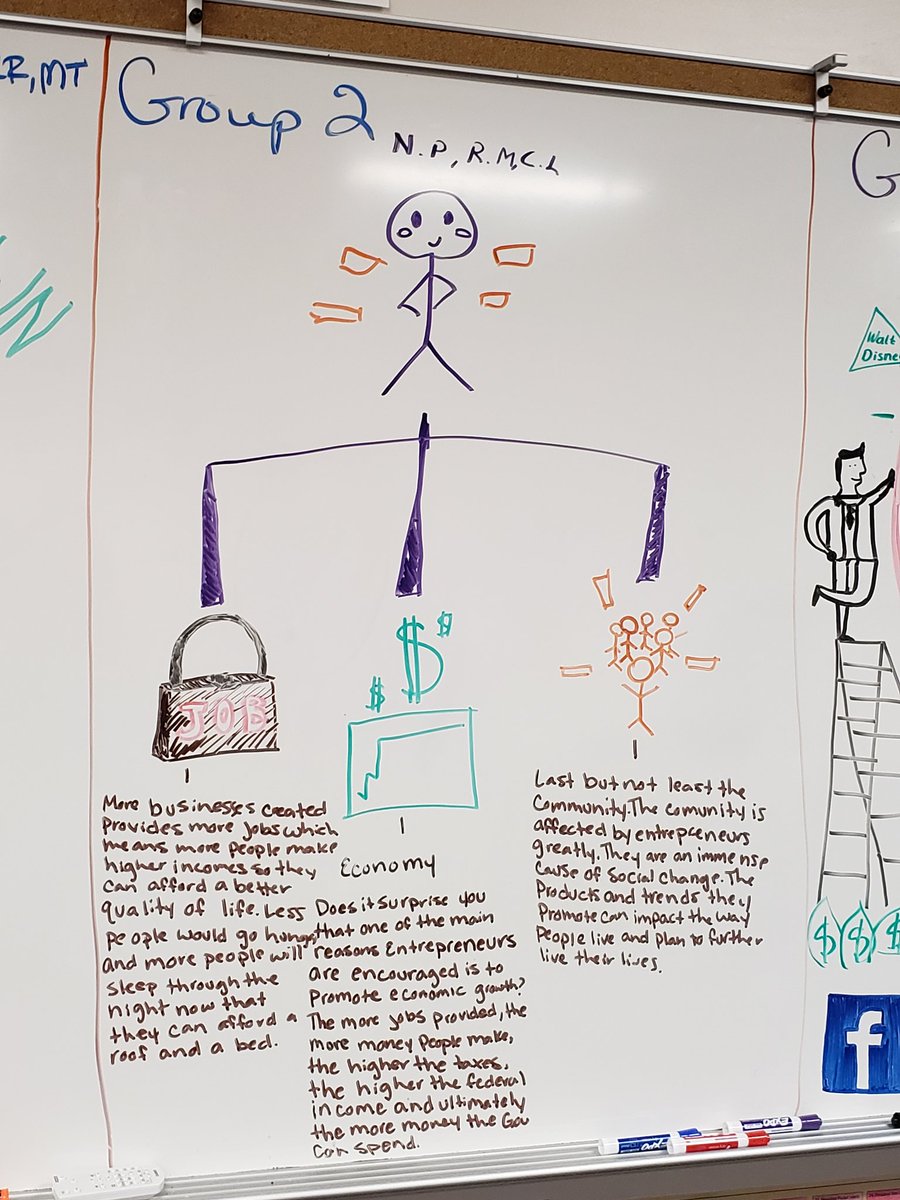 R, MT
Group 2
N.P, R.M, C.L
G
Walt
Disne
JOB
$
$
$
More businesses created
Provides more jobs which
means more people make
higher incomes so they
can afford a better
quality of life. Less
people would go hungry
and more people will
sleep through the
night now that
they can afford a
roof and a bed.
Economy
Does it surprise you
that one of the main
reasons Entrepreneurs
are encouraged is to
Promote economic growth?
The more jobs provided, the
more money people make,
the higher the taxes,
the higher the federal
income and ultimately
the more money the Gov
can spend.
Last but not least the
Community. The comunity is
affected by entrepreneurs
greatly. They are an immense
cause of Social Change. The
Products and trends they
Promote can impact the way
People live and plan to further
live their lives.
$ $ $
f
EXPO